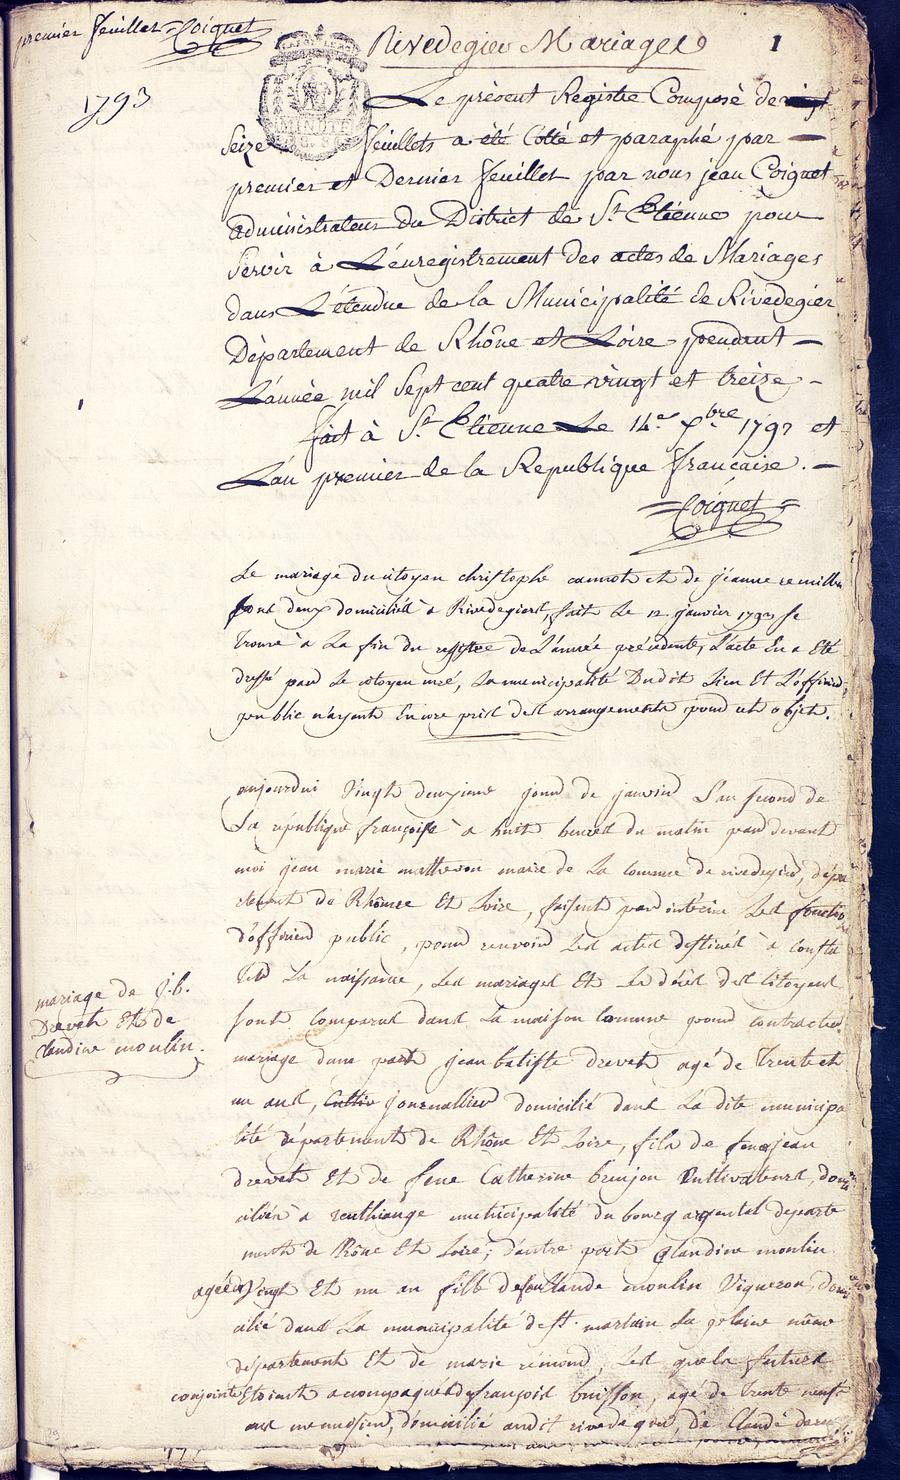 premier feuillet Coignet
Rivedegier Mariages
1
1793
MINUTE
Le présent Registre Composé de
Seize feuillets a été Cotté et paraphé par
premier et Dernier feuillet par nous jean Coignet
administrateur du District de St Etienne pour
Servir à L'enregistrement des actes de Mariages
dans L'étendue de la Municipalité de Rivedegier
Département de Rhône et Loire pendant
L'année mil Sept cent quatre vingt et treize
fait à St Etienne Le 14e Xbre 1792 et
L'an premier de la Republique française.
Coignet
Le mariage du citoyen christophe et de jeanne
tous deux domiciliés à Rivedegiers, fait Le 12 janvier 1793 se
trouve à La fin du registre de L'année précédente, L'acte En a Eté
dressé par Le citoyen curé, La municipalité Dudit Lieu Et L'officier
public n'ayant Encore pris des arrangements pour cet objet.
aujourdui vingt deuxieme jour de janvier L'an second de
La république françoise à huit heures du matin par devant
moi jean marie matheron maire de La commune de rivedegier, dépa
rtement de Rhône Et Loire, faisant par intérim Les fonctio
d'officier public, pour recevoir Les actes destinés à consta
ter La naissance, Les mariages Et Le décès des citoyens
sont comparus dans La maison commune pour contracter
mariage de J.b.
Drevet Et de
Claudine moulin.
mariage dune part jean batiste drevet agé de trente et
un ans, journallier domicilié dans La dite municipa
lité département de Rhône Et Loire, fils de feu jean
drevet Et de feue Catherine brunjon Cultivateurs, domi
ciliés à municipalité du bourg argental departe
ment de Rhône Et Loire; d'autre part Claudine moulin
agée de vingt Et un an fille de feu Claude moulin Vigneron, domi
cilié dans La municipalité de St. martin La plaine même
département Et de marie rémond, Les quels futurs
conjoints Etoient accompagnés de françois buisson, agé de trente neuf
ans menuisier, domicilié audit rivedegier, de Claude